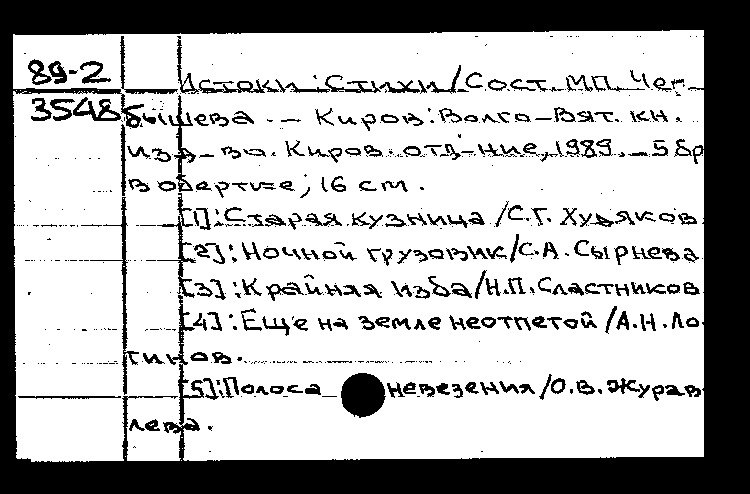 89-2 Истоки : Стихи / Сост. М.П. Чег-
3548 бышева. — Киров : Волго-Вят. кн.
изд-во. Киров. отд-ние, 1989. — 5 бр
в обертке ; 16 см.
[1] : Старая кузница / С.Г. Худяков
[2] : Ночной грузовик / С.А. Сырнева
[3] : Крайняя изба / Н.П. Сластников
[4] : Еще на земле неотпетой / А.Н. Ло-
гинов.
[5] : Полоса невезения / О.В. Журав-
лева.